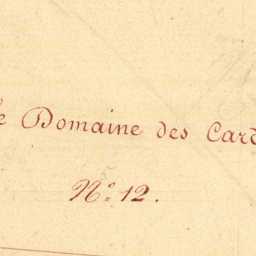 Domaine des Card
N° 12.